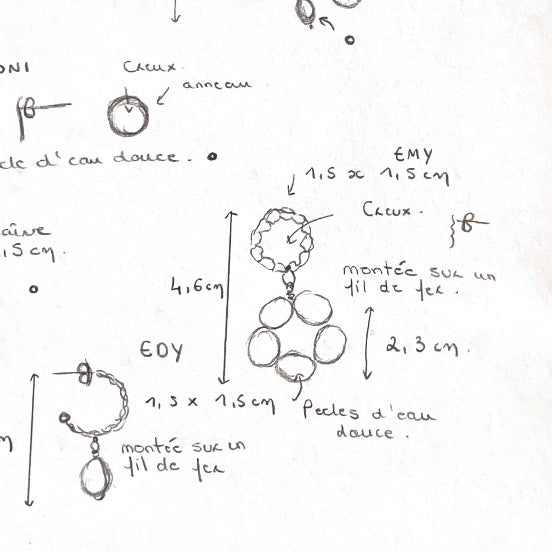 ONI
Creux.
anneau
cle d'eau douce.
EMY
1,5 x 1,5 cm
Creux.
aîne
,5 cm.
4,6cm
montée sur un
fil de fer.
2,3 cm.
EDY
1,5 x 1,5cm
Perles d'eau
douce.
m
montée sur un
fil de fer